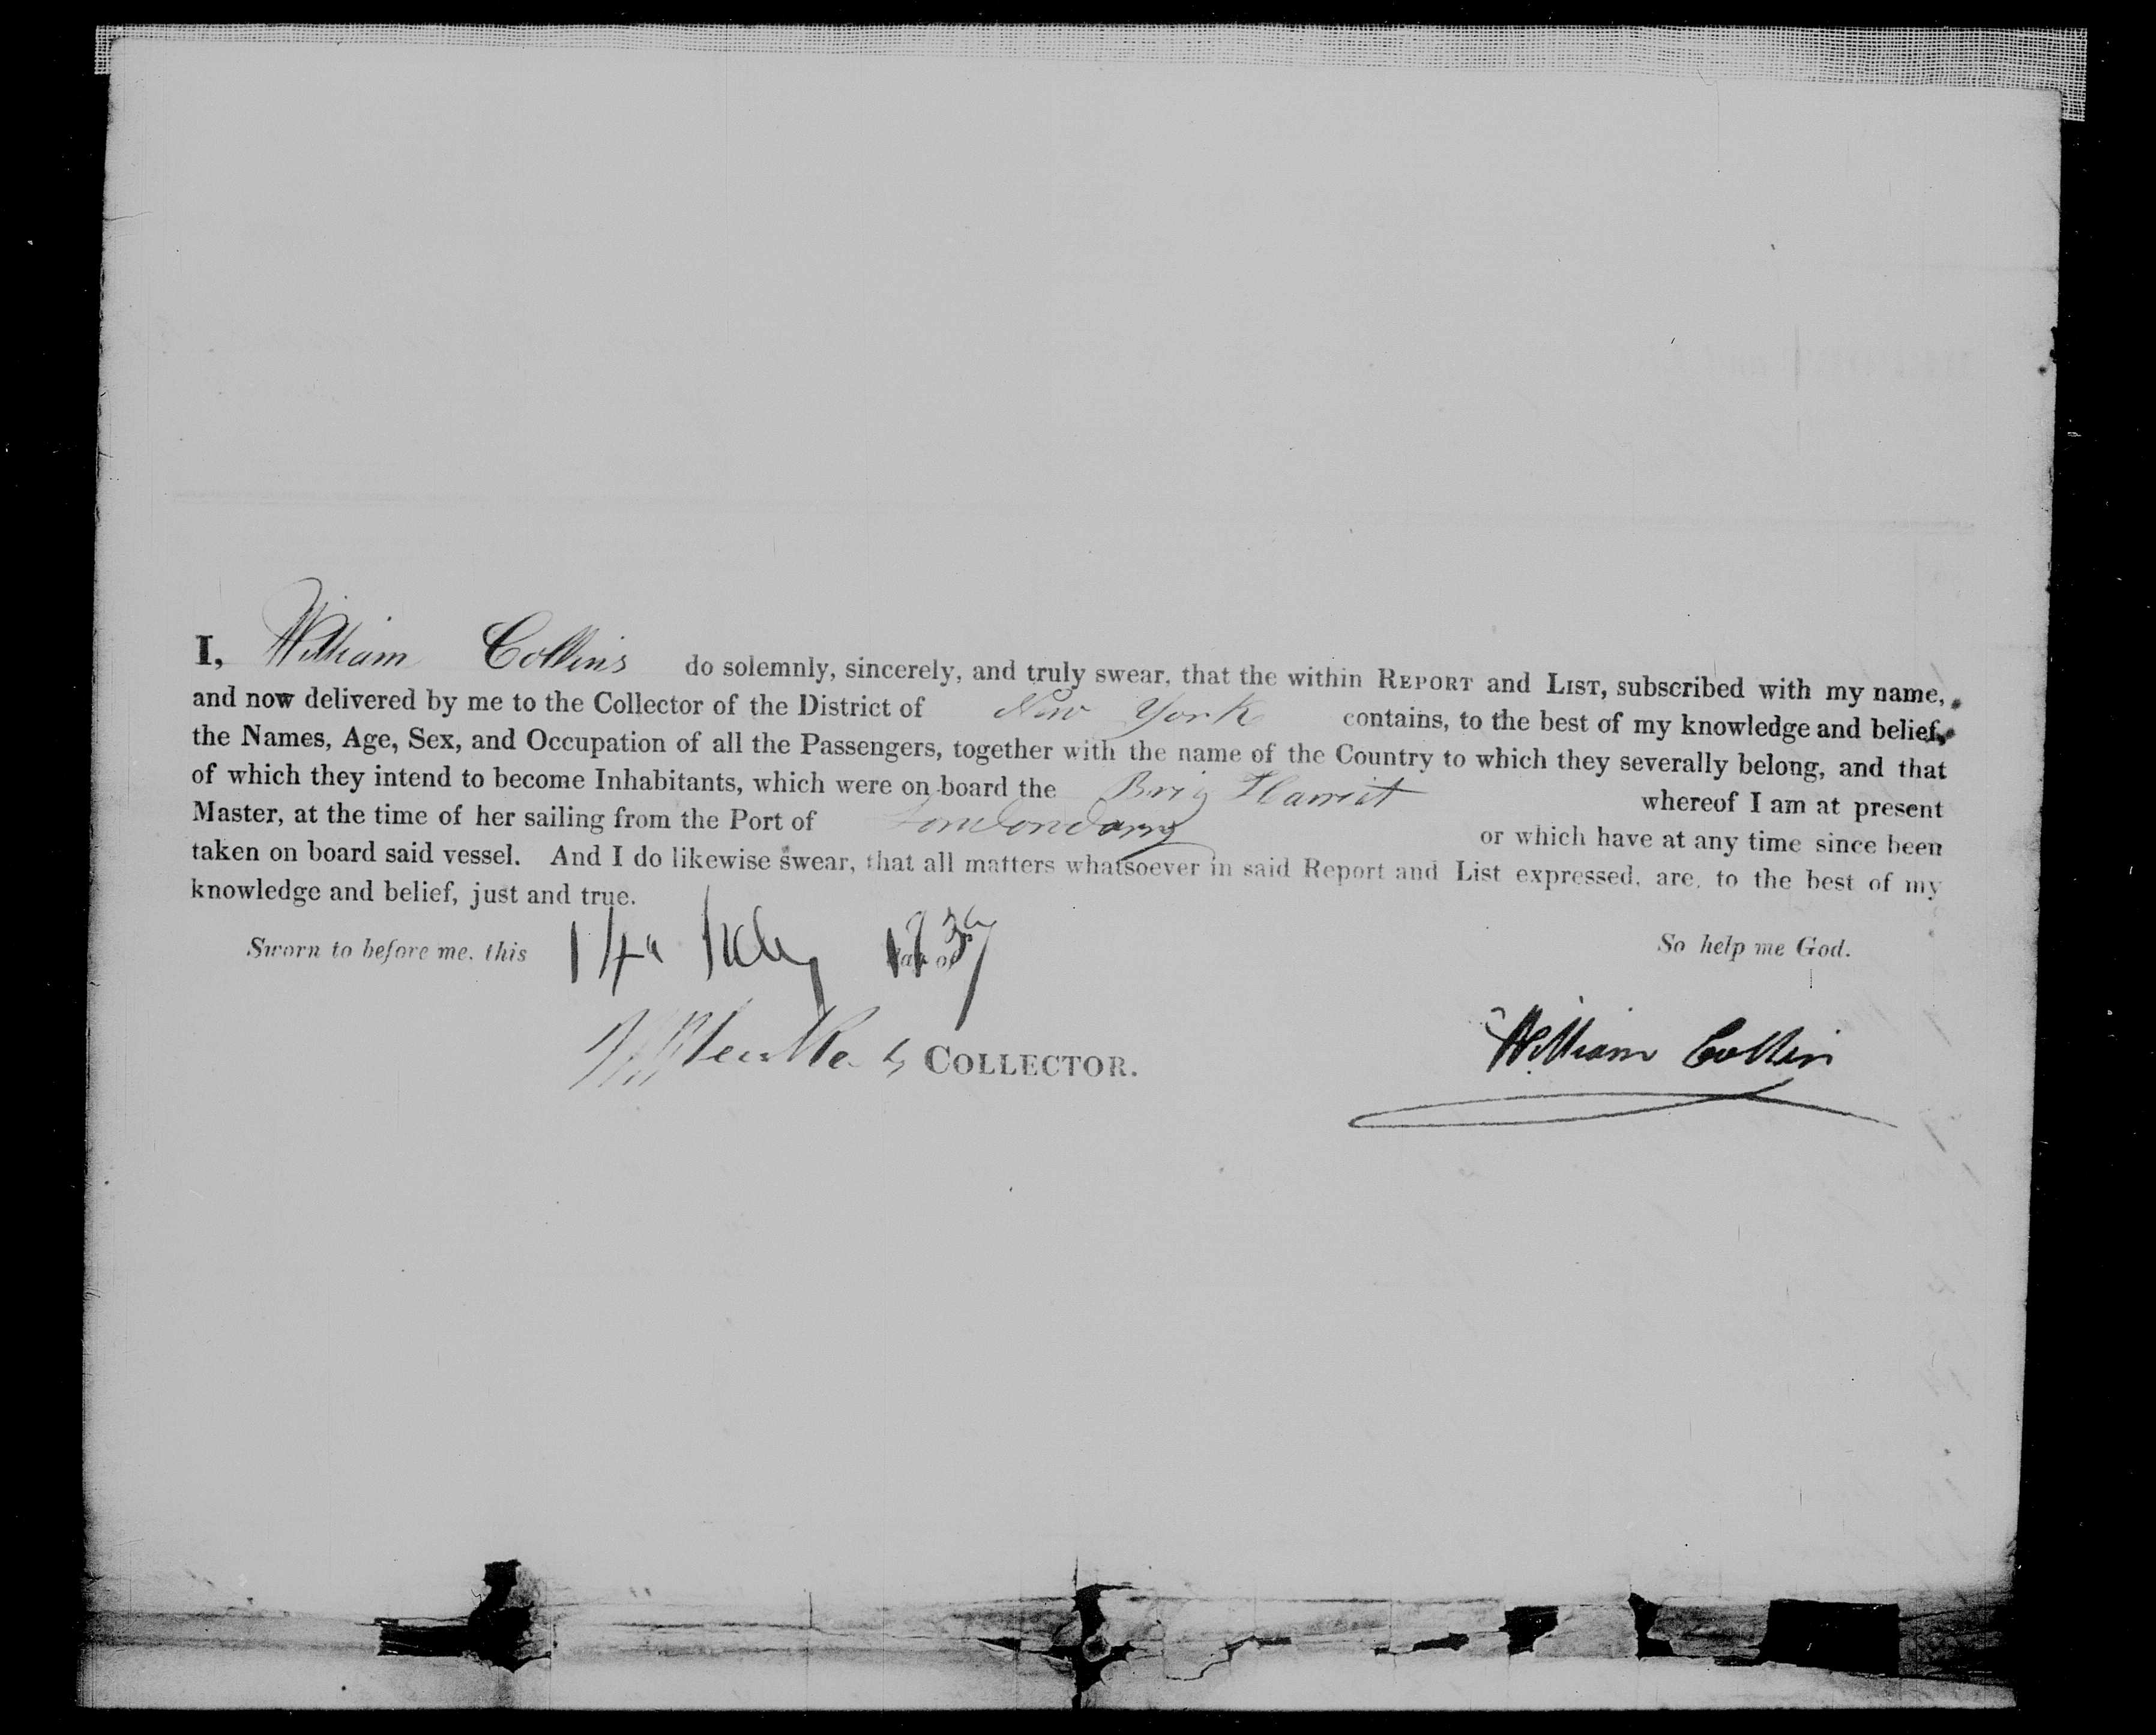 I, William Collins do solemnly, sincerely, and truly swear, that the within REPORT and LIST, subscribed with my name,
and now delivered by me to the Collector of the District of New York contains, to the best of my knowledge and belief,
the Names, Age, Sex, and Occupation of all the Passengers, together with the name of the Country to which they severally belong, and that
of which they intend to become Inhabitants, which were on board the Brig Harriet whereof I am at present
Master, at the time of her sailing from the Port of Londondarry or which have at any time since been
taken on board said vessel. And I do likewise swear, that all matters whatsoever in said Report and List expressed, are, to the best of my
knowledge and belief, just and true.
So help me God.
Sworn to before me, this 14 July 1837
COLLECTOR.
William Collin